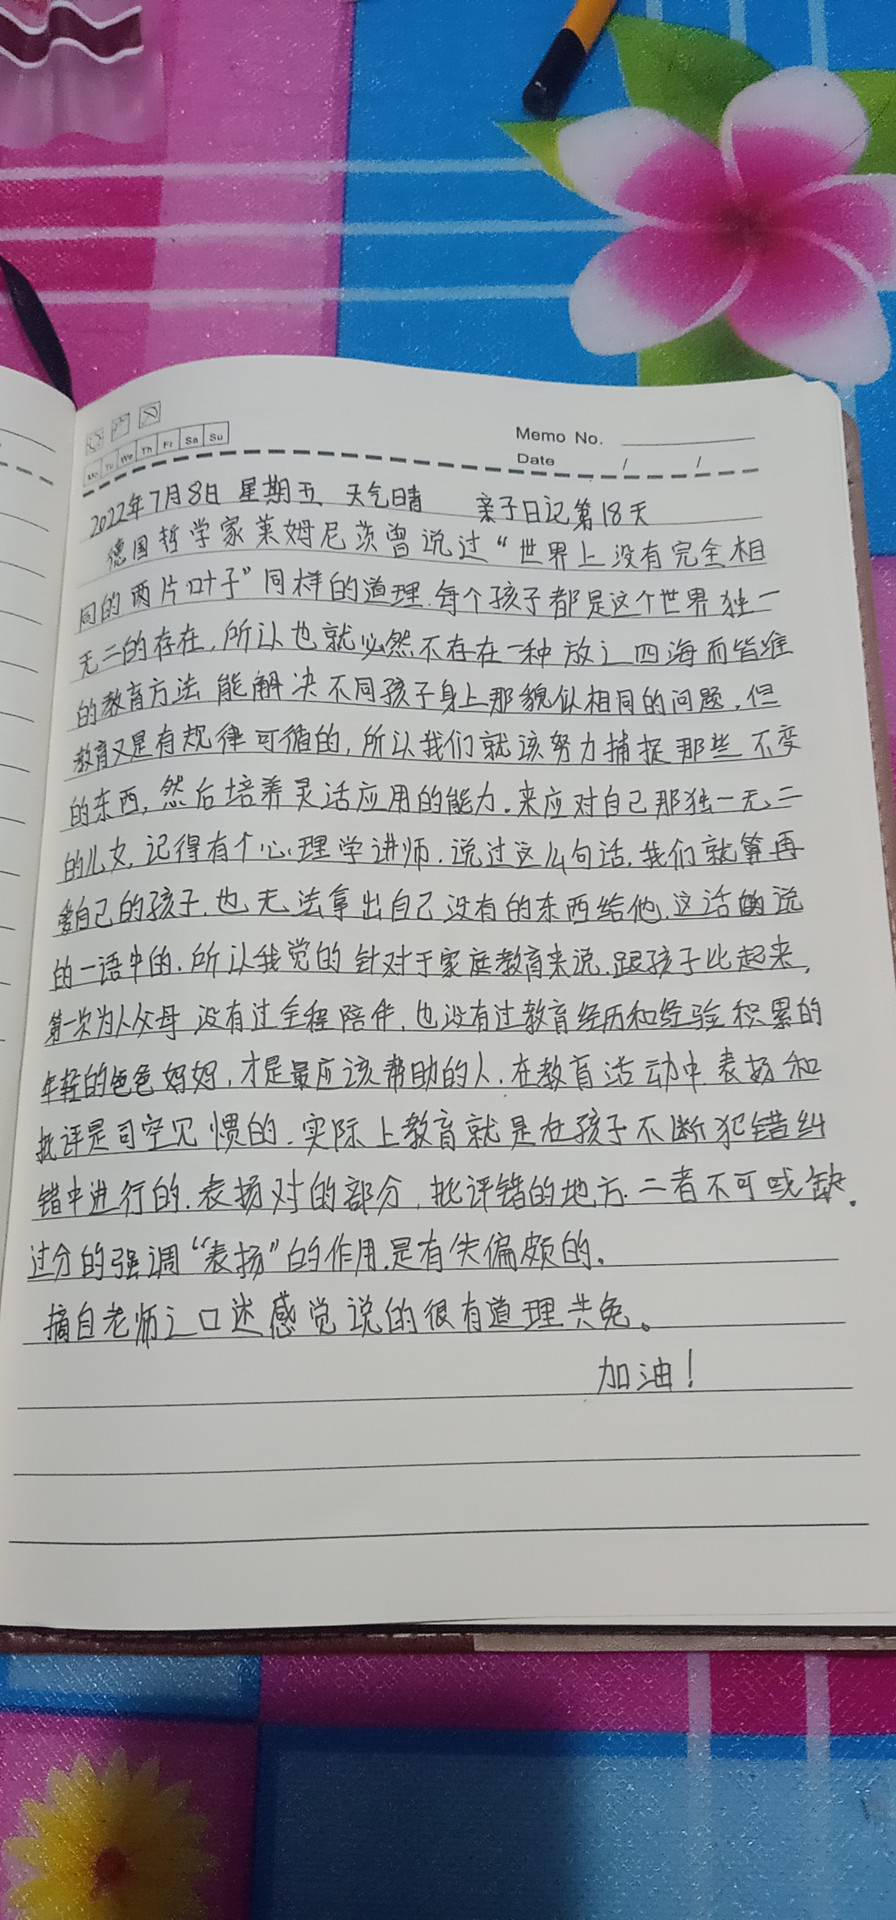 Mo Tu We Th Fr Sa Su
Memo No.
Date / /
2022年7月8日 星期五 天气晴 亲子日记第18天
德国哲学家莱姆尼茨曾说过“世界上没有完全相
同的两片叶子”同样的道理.每个孩子都是这个世界独一
无二的存在,所以也就必然不存在一种放之四海而皆准
的教育方法 能解决不同孩子身上那貌似相同的问题,但
教育又是有规律可循的,所以我们就该努力捕捉那些不变
的东西,然后培养灵活应用的能力.来应对自己那独一无二
的儿女.记得有个心理学讲师.说过这么句话,我们就算再
爱自己的孩子.也无法拿出自己没有的东西给他.这话说
的一语中的.所以我觉的针对于家庭教育来说.跟孩子比起来,
第一次为人父母 没有过全程陪伴.也没有过教育经历和经验积累的
年轻的爸爸妈妈,才是最应该帮助的人.在教育活动中表扬和
批评是司空见惯的.实际上教育就是在孩子不断犯错纠
错中进行的.表扬对的部分,批评错的地方.二者不可或缺.
过分的强调“表扬”的作用.是有失偏颇的.
摘自老师之口述感觉说的很有道理共免。
加油!